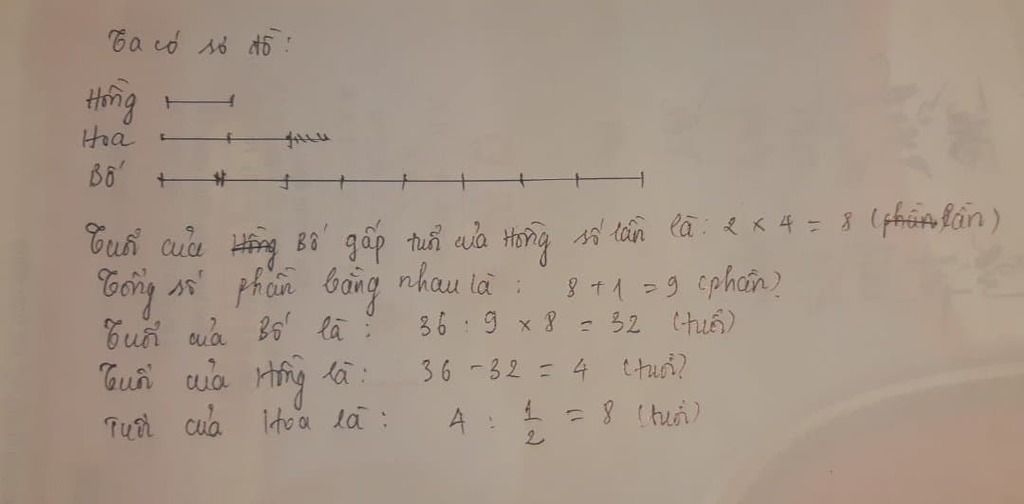 Ta có sơ đồ:
Hồng
Hoa
Bố
Tuổi của Hồng Bố gấp tuổi của Hồng số lần là: 2 x 4 = 8 (phần lần)
Tổng số phần bằng nhau là: 8 + 1 = 9 (phần)
Tuổi của Bố là: 36 : 9 x 8 = 32 (tuổi)
Tuổi của Hồng là: 36 - 32 = 4 (tuổi)
Tuổi của Hoa là: 4 : 1/2 = 8 (tuổi)